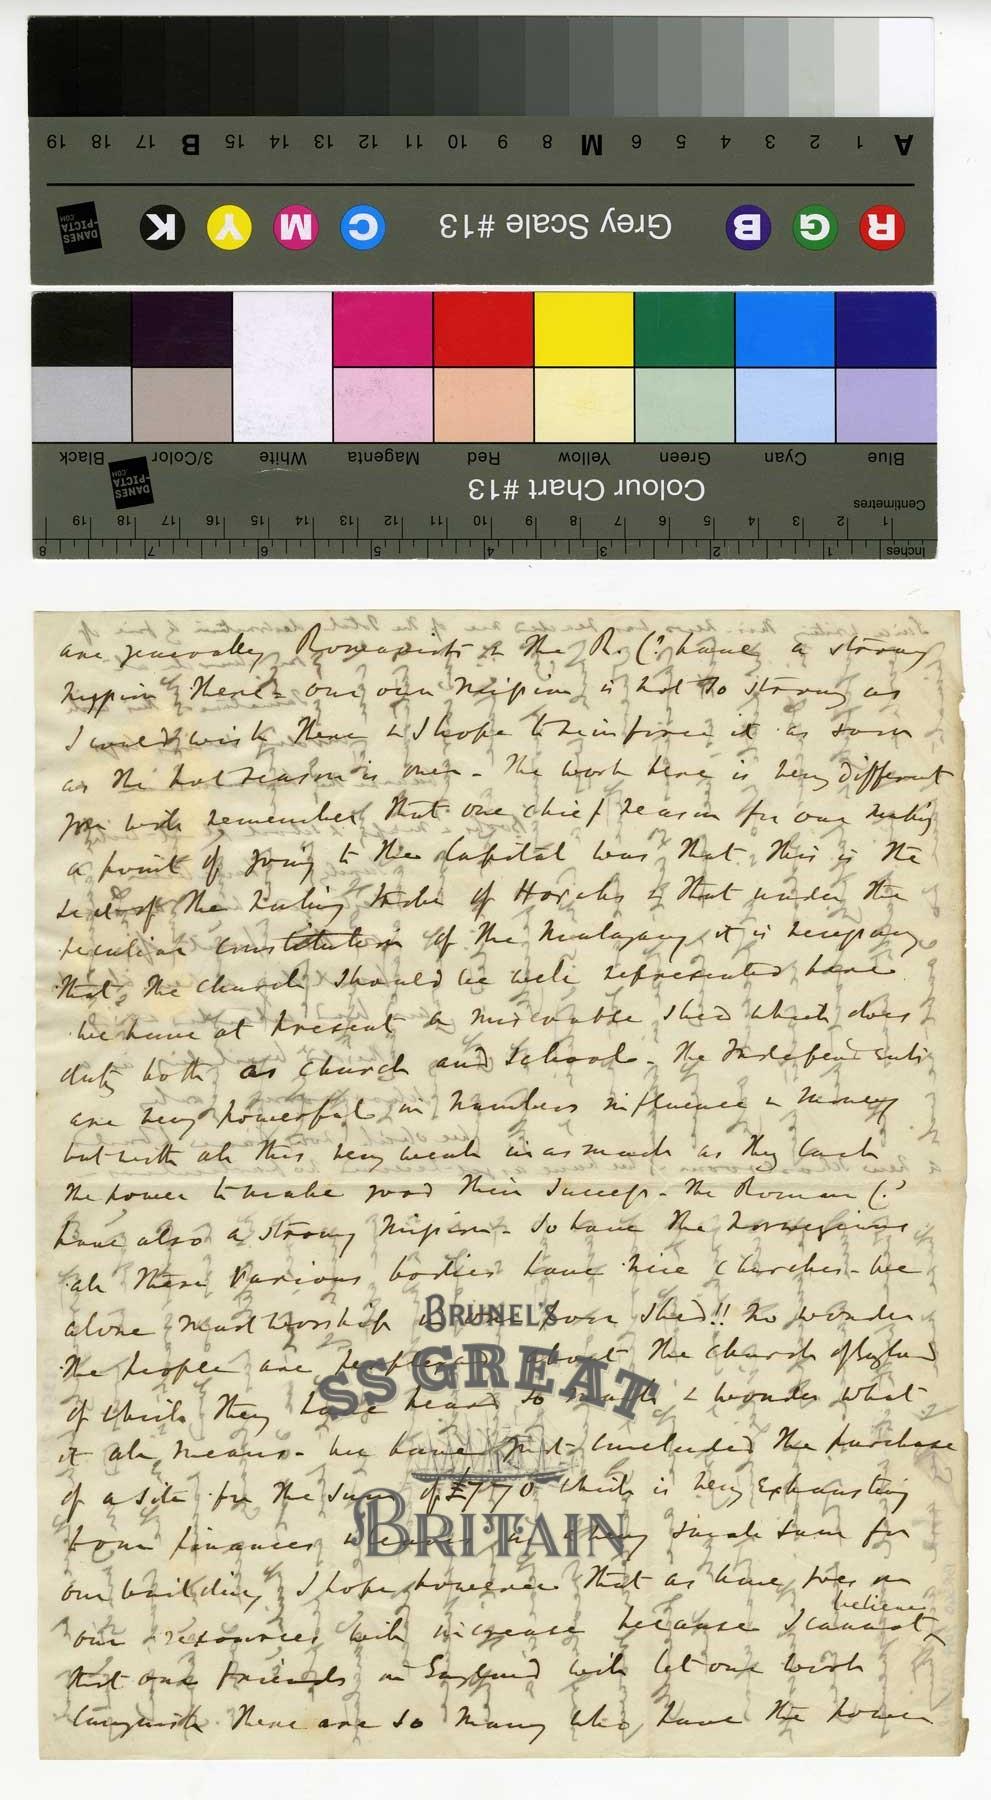 A 1 2 3 4 5 6 M 7 8 9 10 11 12 13 14 15 B 17 18 19
R G B Grey Scale #13 C M Y K
DANES
-PICTA
.COM
Blue Cyan Green Yellow Red Magenta White 3/Color Black
Colour Chart #13
DANES
-PICTA
.COM
Centimetres
1 2 3 4 5 6 7 8 9 10 11 12 13 14 15 16 17 18 19
Inches 1 2 3 4 5 6 7 8
are generally Romanists & the R. C.s have a strong
mission there - our own mission is not so strong as
I could wish there & I hope to reinforce it as soon
as the hot season is over - The work here is very different
you will remember that one chief reason for our making
a point of going to the Capital was that this is the
seat of the ruling tribe of Hovahs & that under the
peculiar constitution of the Malagasy it is necessary
that the Church should be well represented here
We have at present a miserable shed which does
duty both as church and school - The Independents
are very powerful in numbers influence & money
but with all this very weak in as much as they lack
the power to make good their success - The Roman C.s
have also a strong mission - So have the Norwegians
all these various bodies have nice churches - we
alone must worship in our poor shed!! No wonder
the people are perplexed about the Church of England
of which they have heard so much & wonder what
it all means - We have just concluded the purchase
of a site for the sum of £770 which is very exhausting
to our finances & leaves us a very small sum for
our building I hope however that as time goes on
our resources will increase because I cannot believe
that our friends in England will let our work
languish there are so many who have the power
BRUNEL'S
SS GREAT
BRITAIN